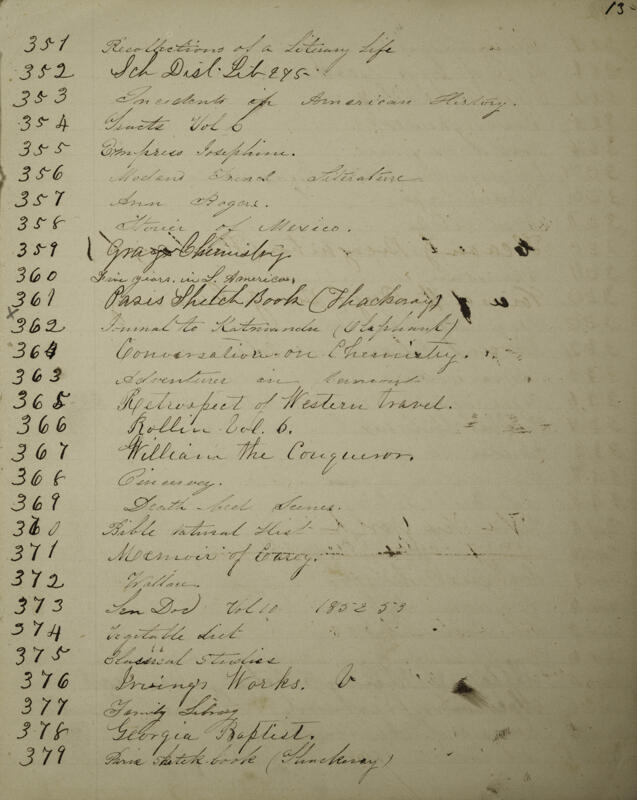 13
351 Recollections of a Literary Life
352 Sch Dist Lib 245
353 Incidents in American History.
354 Tracts Vol 6
355 Empress Josephine.
356 Modern French Literature
357 Ann Rogers.
358 Stories of Mexico.
359 Gray's Chemistry
360 Five years in S. America
361 Paris Sketch Book (Thackeray)
362 Journal to Katmandu (Oliphant)
364 Conversation on Chemistry.
363 Adventures in
365 Retrospect of Western travel.
366 Rollin Vol. 6.
367 William the Conqueror.
368
369 Death bed Scenes.
360 Bible Natural Hist
371 Memoir of Carey.
372 Wallace
373 Sen Doc Vol 10 1852 53
374 Vegetable diet
375 Classical Studies
376 Irving's Works. V
377 Family Library
378 Georgia Baptist.
379 Paris Sketch-book (Thackeray)